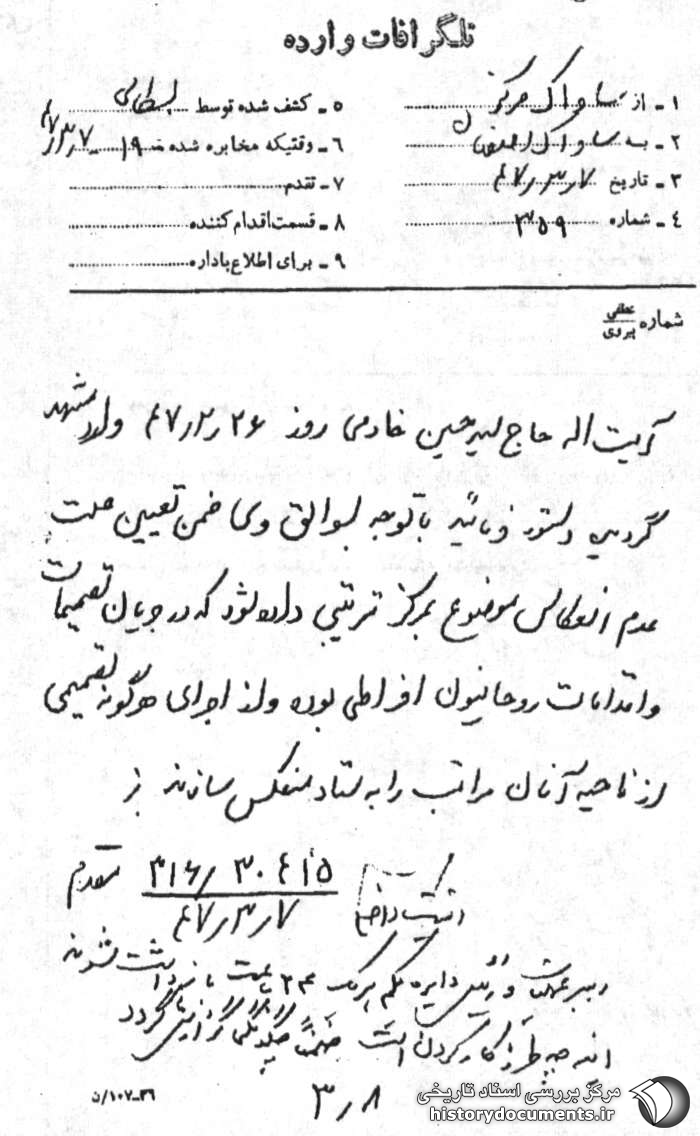 تلگرافات وارده
۱ - از ساواک مرکز
۲ - به ساواک اصفهان
۳ - تاریخ ۴۷/۳/۷
۴ - شماره ۳۵۹
۵ - کشف شده توسط بسطامی
۶ - وقتیکه مخابره شده ۱۹ - ۴۷/۳/۷
۷ - تقدم
۸ - قسمت اقدام کننده
۹ - برای اطلاع باداره
شماره عطفی پیروی
آیت اله حاج سید حسین خادمی روز ۴۷/۲/۲۶ وارد مشهد
گردیده دستور فرمائید با توجه بسوابق وی ضمن تعیین علت
عدم انعکاس موضوع بمرکز ترتیبی داده شود که در جریان تصمیمات
و اقدامات روحانیون افراطی بوده و از اجرای هرگونه تصمیمی
از ناحیه آنان مراتب را به ستاد منعکس سازند
۳۱۶/۳۰۴۱۵ مقدم
۴۷/۳/۷
رهبر عملیات و رئیس دایره یکم هریک ۲۴ ساعت بازداشت شوند
این چه طرز کار کردن است ضمناً
۳/۸
۳۶-۱۰۷/ن
مرکز بررسی اسناد تاریخی
historydocuments.ir